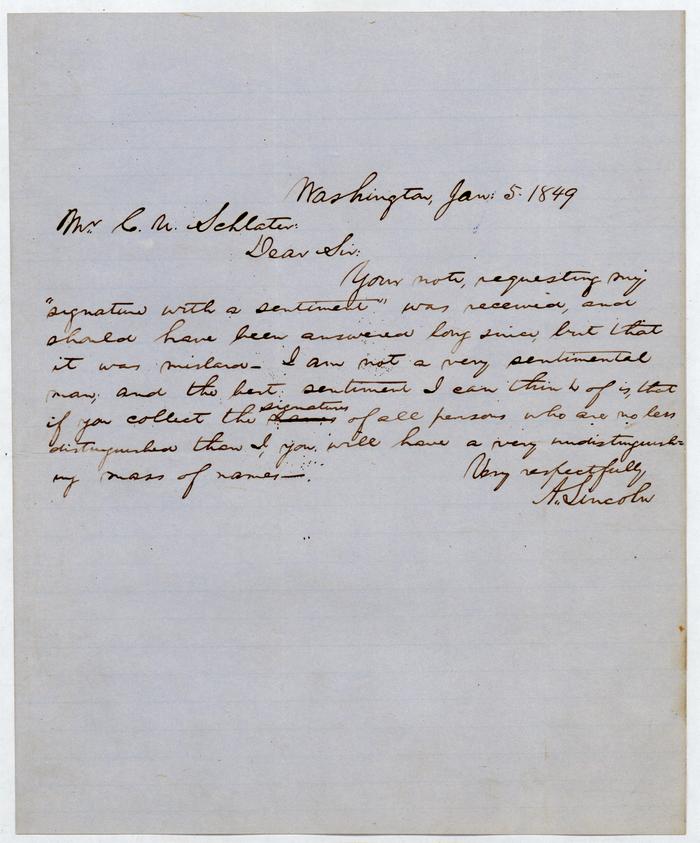 Washington, Jan: 5. 1849
Mr. C. U. Schlater:
Dear Sir:
Your note, requesting my
"signature with a sentiment" was received, and
should have been answered long since, but that
it was mislaid— I am not a very sentimental
man; and the best sentiment I can think of is, that
if you collect the signatures of all persons who are no less
distinguished than I, you will have a very undistinguish=
ing mass of names—
Very respectfully
A. Lincoln